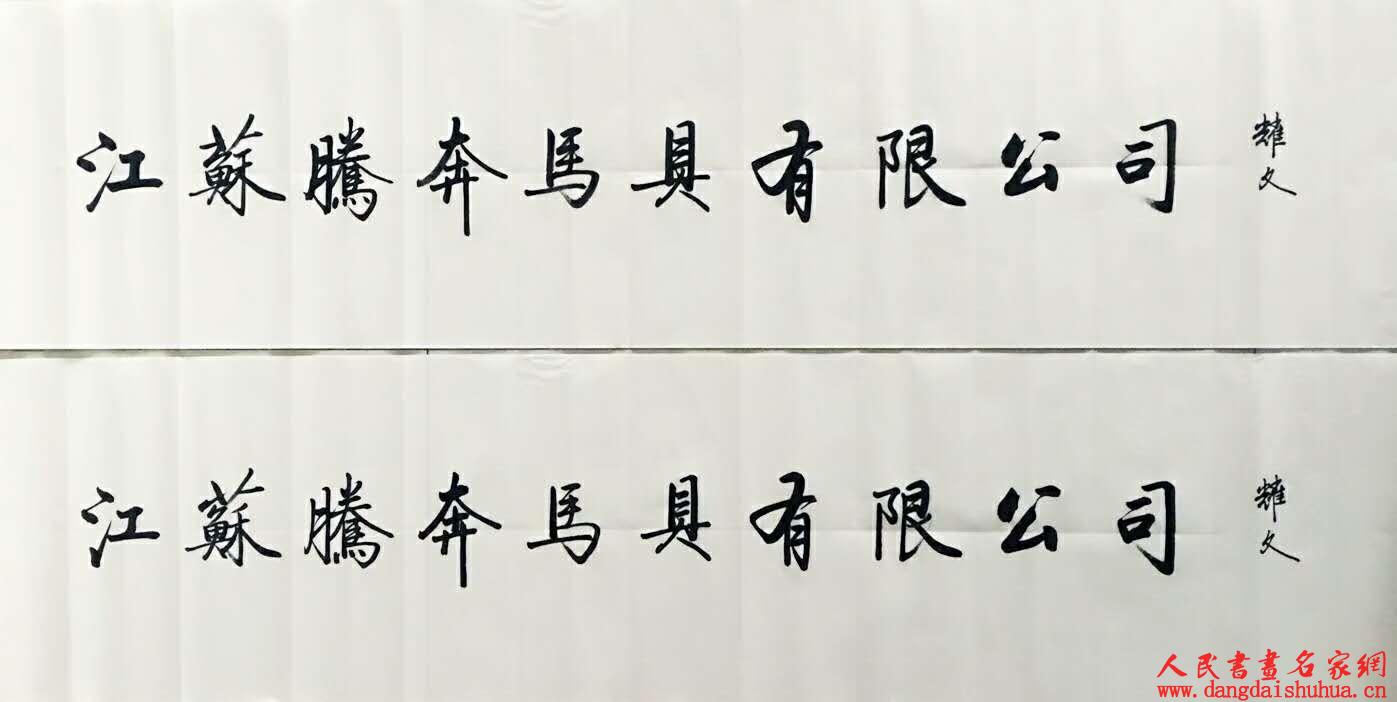 江蘇騰奔馬具有限公司 耀文
江蘇騰奔馬具有限公司 耀文
人民書畫名家網
www.dangdaishuhua.cn